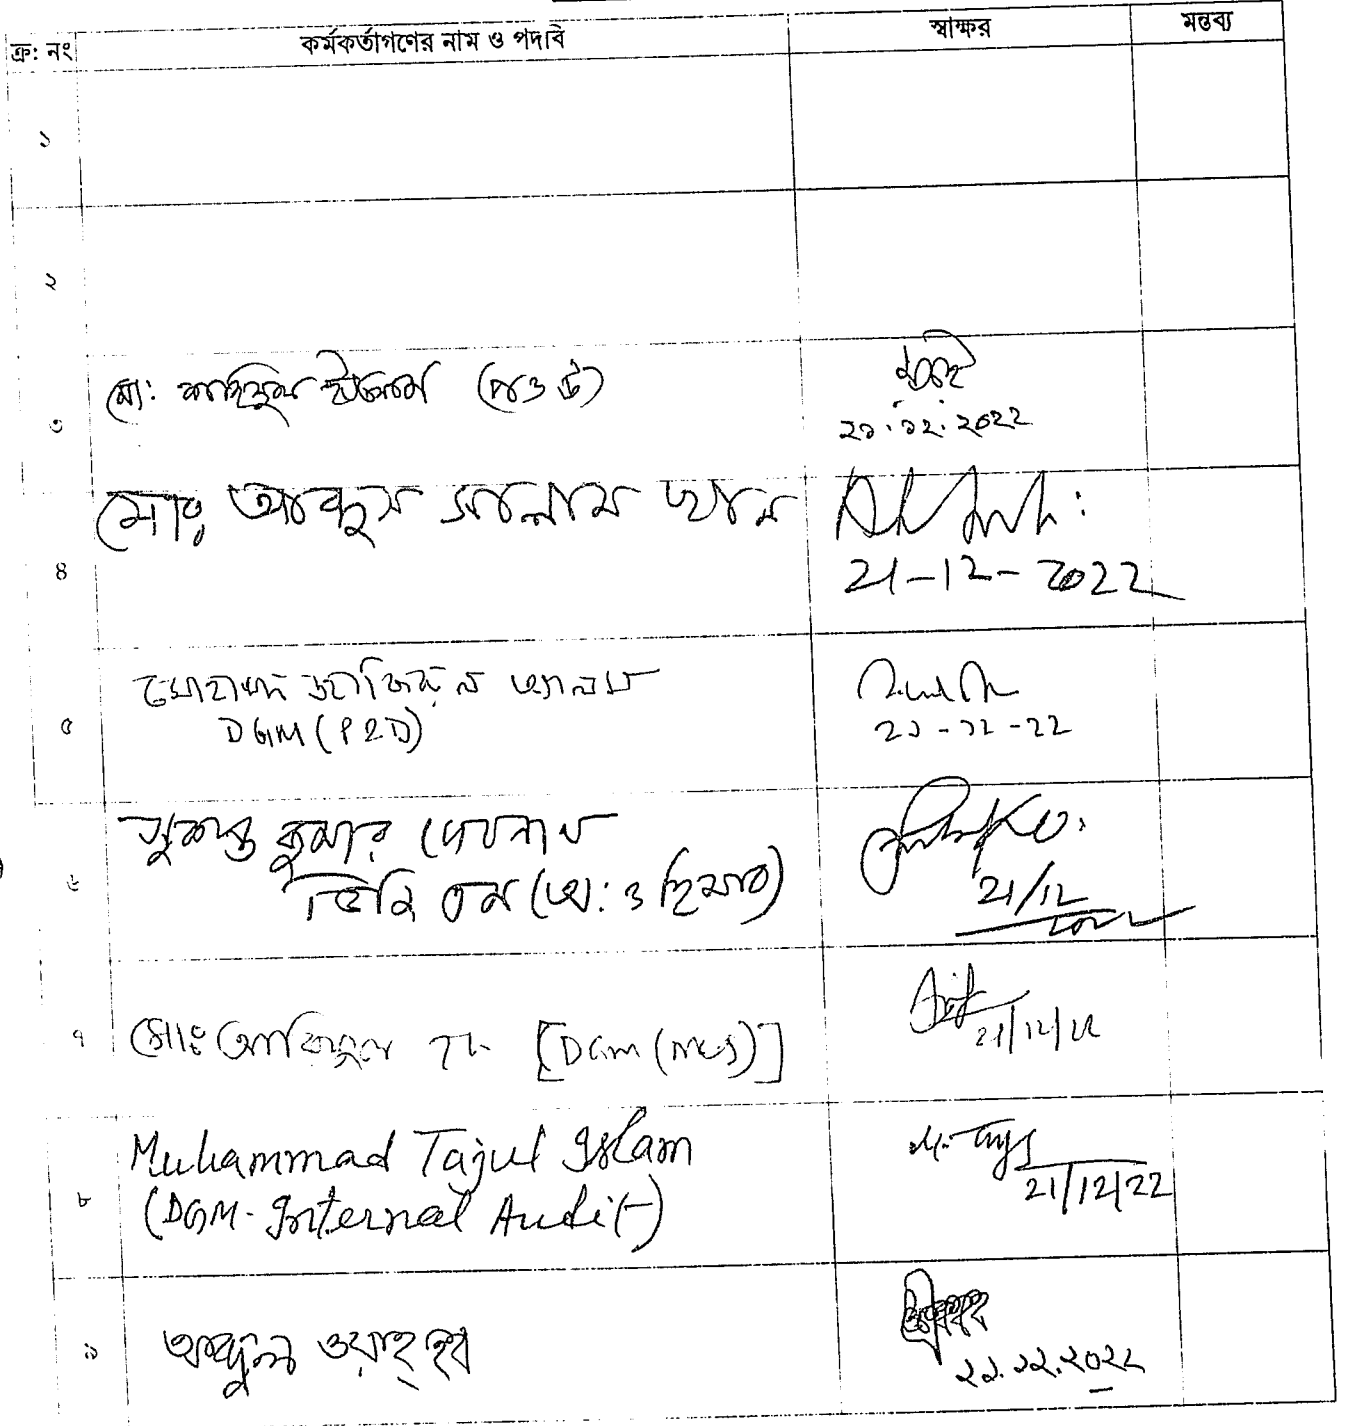 ক্র: নং কর্মকর্তাগণের নাম ও পদবি স্বাক্ষর মন্তব্য
১
২
মো: ইসলাম
৩ ২১.১২.২০২২
মোঃ আব্দুস সালাম খান
৪ 21-12-2022
মোহাম্মদ আলম
৫ DGM (P&D) ২১-১২-২২
সুকান্ত কুমার দেবনাথ
৬ ডিজিএম (অ: ও হিসাব) 21/12
2022
৭ মোঃ আরিফুল হক [DGM (MIS)] 21/12/22
Muhammad Tajul Islam
৮ (DGM-Internal Audit) 21/12/22
৯ আব্দুল ওয়াহ্হাব
২১.১২.২০২২